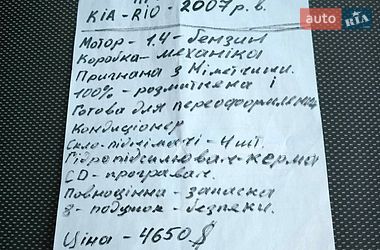 AUTO RIA
KIA - RIO - 2007 р. в.
Мотор - 1.4 - бензин
Коробка - механіка
Пригнана з Німеччини.
100% - розмитнена і
Готова для переоформлення
Кондиціонер
Скло-підіймачі - 4 шт.
Гідропідсилювач - керма
CD - програвач.
Повноцінна - запаска
8 - подушок - безпеки.
Ціна - 4650 $